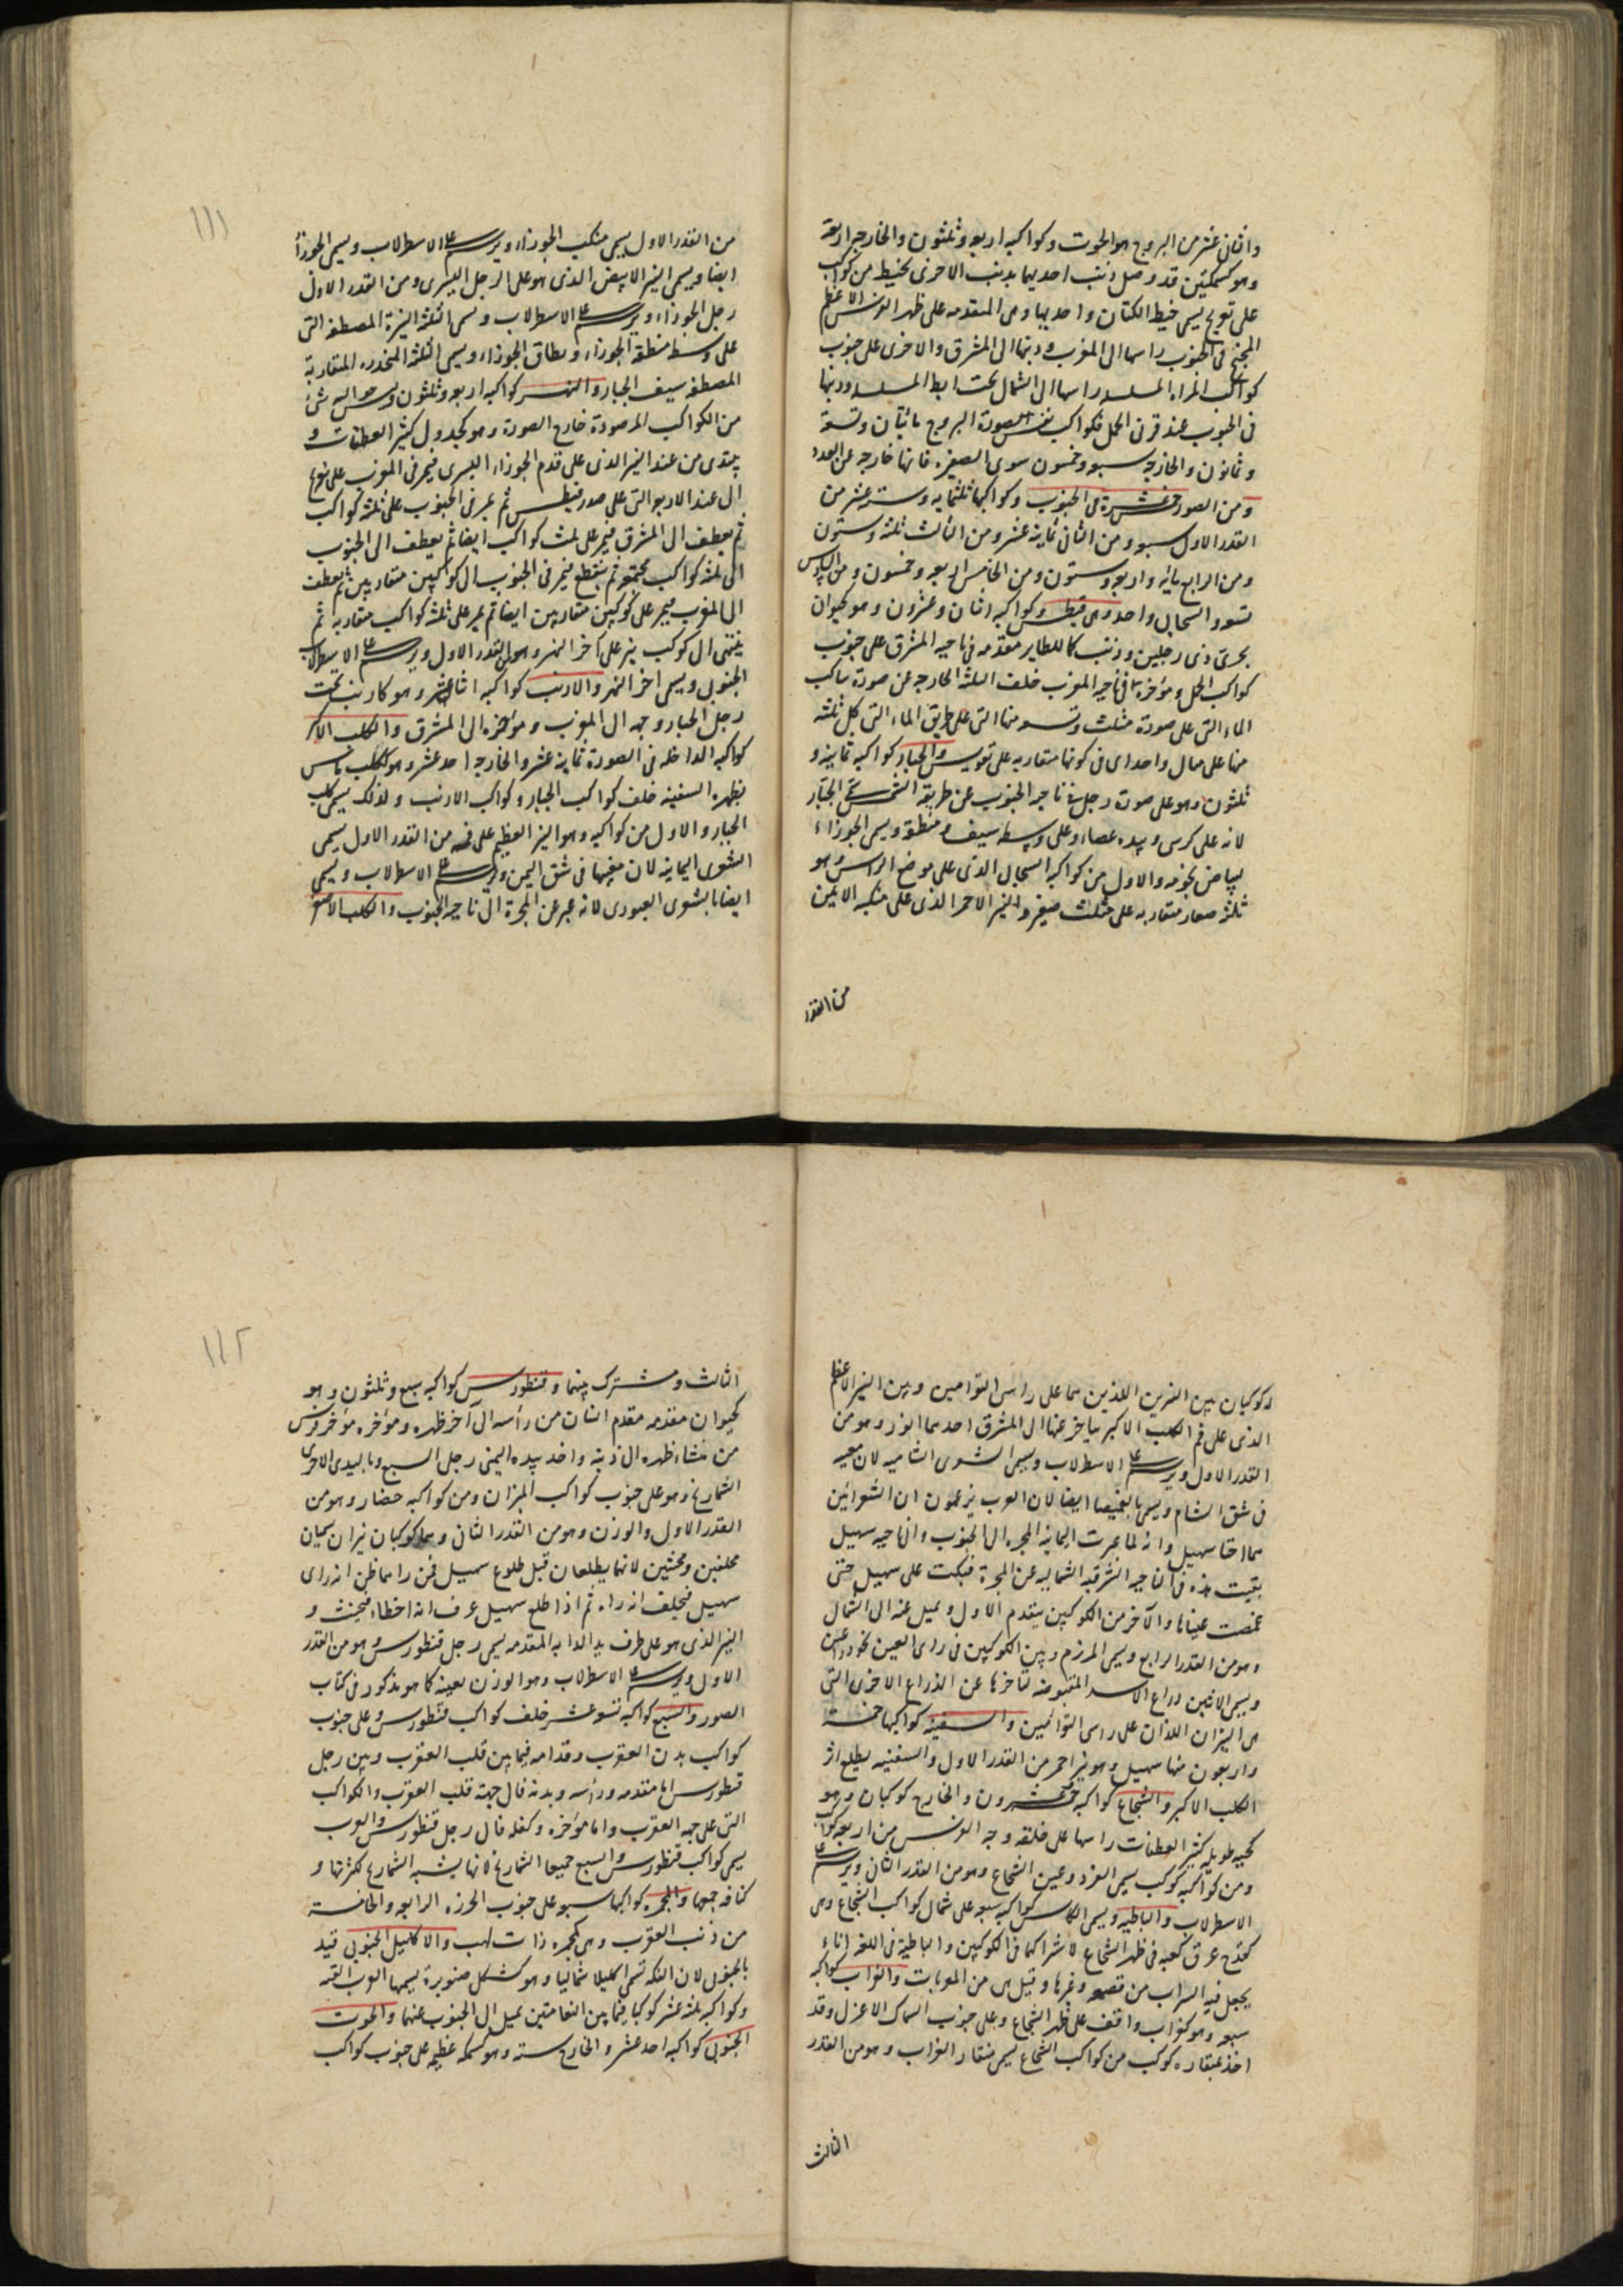 والثانى عشر من البروج هو الحوت وكواكبه اربعه وثلثون والخارجه اربعة
وهو كسمكتين قد وصل ذنب احديهما بذنب الاخرى بخيط من كواكب
على تعويج يسمى خيط الكتان واحديهما وهى المتقدمه على ظهر الفرس الاعظم
المجنح فى الجنوب راسها الى المغرب وذنبها الى المشرق والاخرى على جنوب
كواكب المراه المسلسله راسها الى الشمال تحت ابط المسلسله وذنبها
فى الجنوب عند قرنى الحمل فكواكب نفس الصورة البروج مائتان وتسعة
وثمانون والخارجه سبعه وخمسون سوى الضفيره فانها خارجه عن العدد
ومن الصور خمس عشرة فى الجنوب وكواكبها ثلثمايه وسته عشر من
القدر الاول سبعه ومن الثانى ثمانيه عشر ومن الثالث ثلثه وستون
ومن الرابع مايه واربعه وستون ومن الخامس اربعه وخمسون ومن السادس
تسعه والسحابى واحد وهى قيطس وكواكبه اثنان وعشرون وهو كحيوان
بحرى ذى رجلين وذنب كالطاير مقدمه فى ناحيه المشرق على جنوب
كواكب الحمل ومؤخره فى ناحيه المغرب خلف الثلثه الخارجه عن صورة ساكب
الماء التى على صورة مثلث وتسعه منها التى على طريق الماء التى كل ثلثه
منها على مثال واحد اى فى كونها متقاربه على تقويس والجبار كواكبه ثمانيه و
ثلثون وهو على صورة رجل فى ناحيه الجنوب عن طريقه الشمس يسمى الجبّار
لانه على كرسى وبيده عصاء وعلى وسطه سيف ومنطقة ويسمى الجوزاء
لبياض نجومه والاول من كواكبه السحابى الذى على موضع الراس وهو
ثلثه صغار متقاربه على مثلث صغير والنير الاحمر الذى على منكبه الايمن
من القدر
١١١
من القدر الاول يسمى منكب الجوزاء ويرسم على الاسطرلاب ويسمى الجوزاء
ايضا ويسمى النير الابيض الذى هو على الرجل اليسرى ومن القدر الاول
رجل الجوزاء ويرسم على الاسطرلاب وتسمى الثلثة النيرة المصطفه التى
على وسط منطقة الجوزاء ونطاق الجوزاء ويسمى الثلثة المنحدره المتقاربة
المصطفه سيف الجبار والنهر كواكبه اربعه وثلثون وليس حواليه شئ
من الكواكب المرصودة خارج الصورة وهو كجدول كثير العطفات و
يبتدى من عند النير الذى على قدم الجوزاء اليسرى فيمر فى المغرب على تعويج
الى عند الاربعه التى على صدر قيطس ثم يمر فى الجنوب على ثلثه كواكب
ثم يعطف الى المشرق فيمر على ثلث كواكب ايضا ثم يعطف الى الجنوب
الى ثلثه كواكب مجتمعه ثم ينقطع فيمر فى الجنوب الى كوكبين متقاربين ثم يعطف
الى المغرب فيمر على كوكبين متقاربين ايضا ثم يمر على ثلثه كواكب متقاربه ثم
ينتهى الى كوكب نير على آخر النهر وهو من القدر الاول ويرسم على الاسطرلاب
الجنوبى ويسمى اخر النهر والارنب كواكبه اثنا عشر وهو كارنب تحت
رجل الجبار وجهه الى المغرب ومؤخره الى المشرق والكلب الاكبر
كواكبه الداخله فى الصورة ثمانيه عشر والخارجه احد عشر وهو ككلب
بظهره السفينه خلف كواكب الجبار وكواكب الارنب ولذلك يسمى كلب
الجبار والاول من كواكبه وهو النير العظيم على فمه من القدر الاول يسمى
الشعرى اليمانيه لان مغيبها فى شق اليمن ويرسم على الاسطرلاب ويسمى
ايضا بالشعرى العبور لانه عبر عن المجرة الى ناحيه الجنوب والكلب الاصغر
وكوكبان بين النيرين اللذين هما على راس التوامين وبين النير الاعظم
الذى على فم الكلب الاكبر يتاخر عنها الى المشرق احدهما انور وهو من
القدر الاول ويرسم على الاسطرلاب ويسمى الشعرى الشاميه لان مغيبه
فى شق الشام ويسمى بالغميصا ايضا لان العرب يزعمون ان الشعرائين
هما اختا سهيل وانه لما عبرت اليمانيه المجره الى الجنوب والى ناحيه سهيل
بقيت هذه فى الناحيه الشرقيه الشماليه عن المجرة فبكت على سهيل حتى
غمصت عيناها والآخر من الكوكبين يتقدم الاول ويميل عنه الى الشمال
وهو من القدر الرابع ويسمى المرزم وبين الكوكبين فى راى العين نحو ذراعين
ويسمى الاثنين ذراع الاسد المقبوضه لتاخرها عن الذراع الاخرى التى
هى النيران اللذان على راسى التوائمين والسفينه كواكبها خمسة
واربعون منها سهيل وهو نير احمر من القدر الاول والسفينه يطلع اثر
الكلب الاكبر والشجاع كواكبه خمسه وعشرون والخارج كوكبان وهو
كحيه طويله كثير العطفات راسها على خلقه وجه الفرس من اربعه كواكب
ومن كواكبه كوكب يسمى الفرد وعين الشجاع وهو من القدر الثانى ويرسم على
الاسطرلاب والباطيه ويسمى الكاس كواكبه سبعه على شمال كواكب الشجاع وهى
كقدح عرق كعبه فى ظهر الشجاع لاشتراكهما فى الكوكبين والباطية فى اللغه اناء
يجعل فيه الشراب من قصعه وغيرها وقيل هى من المعربات والغراب كواكبه
سبعه وهو كغراب واقف على ظهر الشجاع وعلى جنوب السماك الاعزل وقد
اخذ بمنقاره كوكب من كواكب الشجاع يسمى منقار الغراب وهو من القدر
الثالث
١١٢
الثالث ومشترك بينهما وقنطورس كواكبه سبع وثلثون وهو
كحيوان مقدمه مقدم انسان من رأسه الى آخر ظهره ومؤخره مؤخر فرس
من منشاء ظهره الى ذنبه واخذ بيده اليمنى رجل السبع وباليد الاخرى
الشماريخ وهو على جنوب كواكب الميزان ومن كواكبه حضار وهو من
القدر الاول والوزن وهو من القدر الثانى وهما كوكبان نيران يسميان
محلفين ومحنثين لانهما يطلعان قبل طلوع سهيل فمن راهما ظن انه راى
سهيل فيحلف انه راه ثم اذا طلع سهيل عرف انه اخطاء فيحنث و
النير الذى هو على طرف يد الدابه المقدمه يسمى رجل قنطورس وهو من القدر
الاول ويرسم على الاسطرلاب وهو الوزن بعينه كما هو مذكور فى كتاب
الصور والسبع كواكبه تسعه عشر خلف كواكب قنطورس وعلى جنوب
كواكب بدن العقرب وقدامه فيما بين قلب العقرب وبين رجل
قنطورس اما مقدمه ورأسه وبدنه فالى جهة قلب العقرب والكواكب
التى على جبهه العقرب واما مؤخره وكفله فالى رجل قنطورس والعرب
يسمى كواكب قنطورس والسبع جميعا الشماريخ لانها يشبه الشماريخ لكثرتها و
كثافه جمعها والمجمره كواكبها سبعه على جنوب الخرزه الرابعه والخامسة
من ذنب العقرب وهى كمجمره ذات لهب والاكليل الجنوبى قيد
بالجنوبى لان الفكه تسمى اكليلا شماليا وهو كشكل صنوبرة يسميها العرب القبه
وكواكبه ثلثه عشر كوكبا فيما بين النعامتين يميل الى الجنوب عنهما والحوت
الجنوبى كواكبه احد عشر والخارج سته وهو كسمكه عظيمه على جنوب كواكب